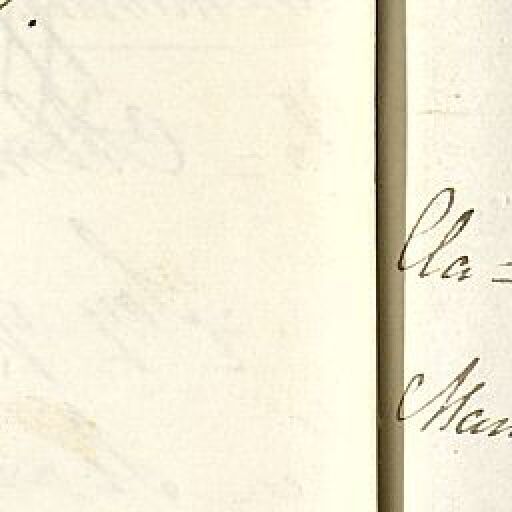 Cla=
Man